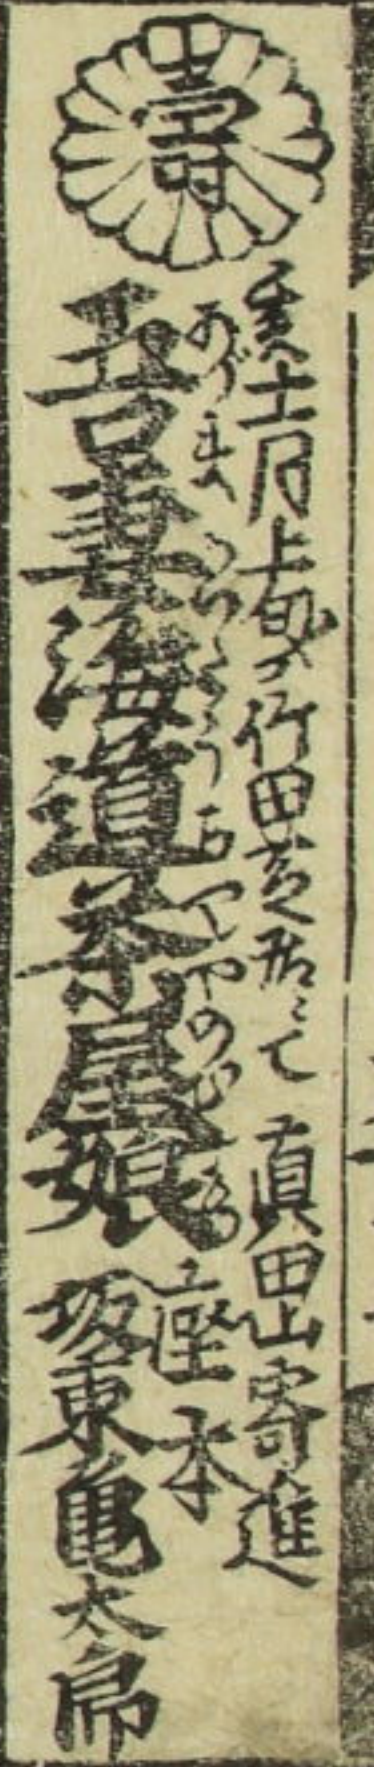 壽
十一月上旬ゟ竹田芝居ニて 真田山寄進
吾妻海道茶屋娘
あづまかいどうちややのむすめ
座本
坂東亀太郎